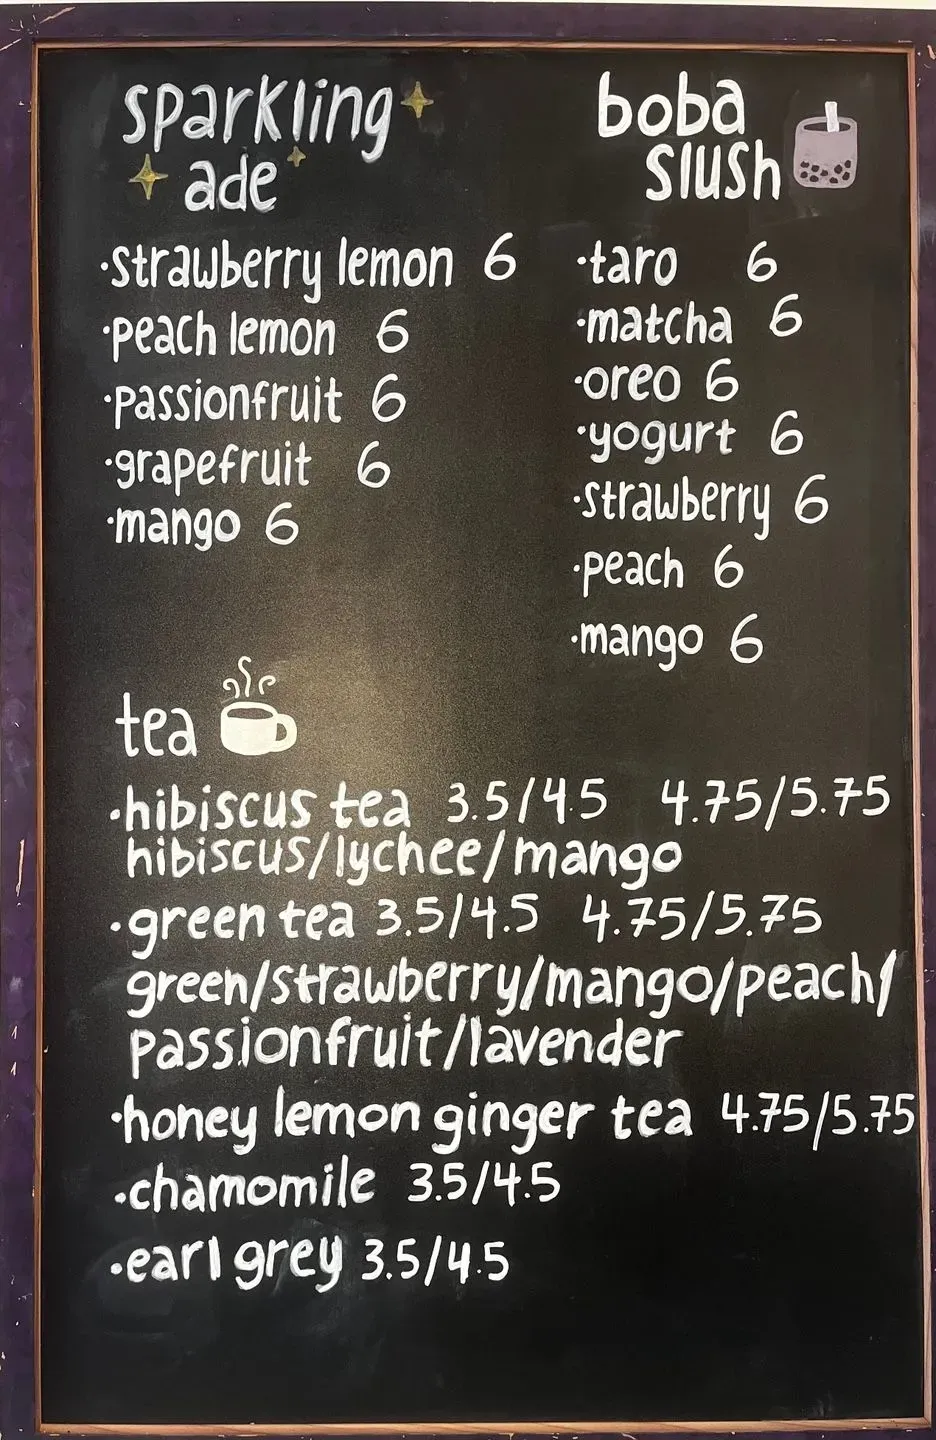 sparkling
ade
·strawberry lemon 6
·peach lemon 6
·passionfruit 6
·grapefruit 6
·mango 6
boba
slush
·taro 6
·matcha 6
·oreo 6
·yogurt 6
·strawberry 6
·peach 6
·mango 6
tea
·hibiscus tea 3.5/4.5 4.75/5.75
hibiscus/lychee/mango
·green tea 3.5/4.5 4.75/5.75
green/strawberry/mango/peach/
passionfruit/lavender
·honey lemon ginger tea 4.75/5.75
·chamomile 3.5/4.5
·earl grey 3.5/4.5